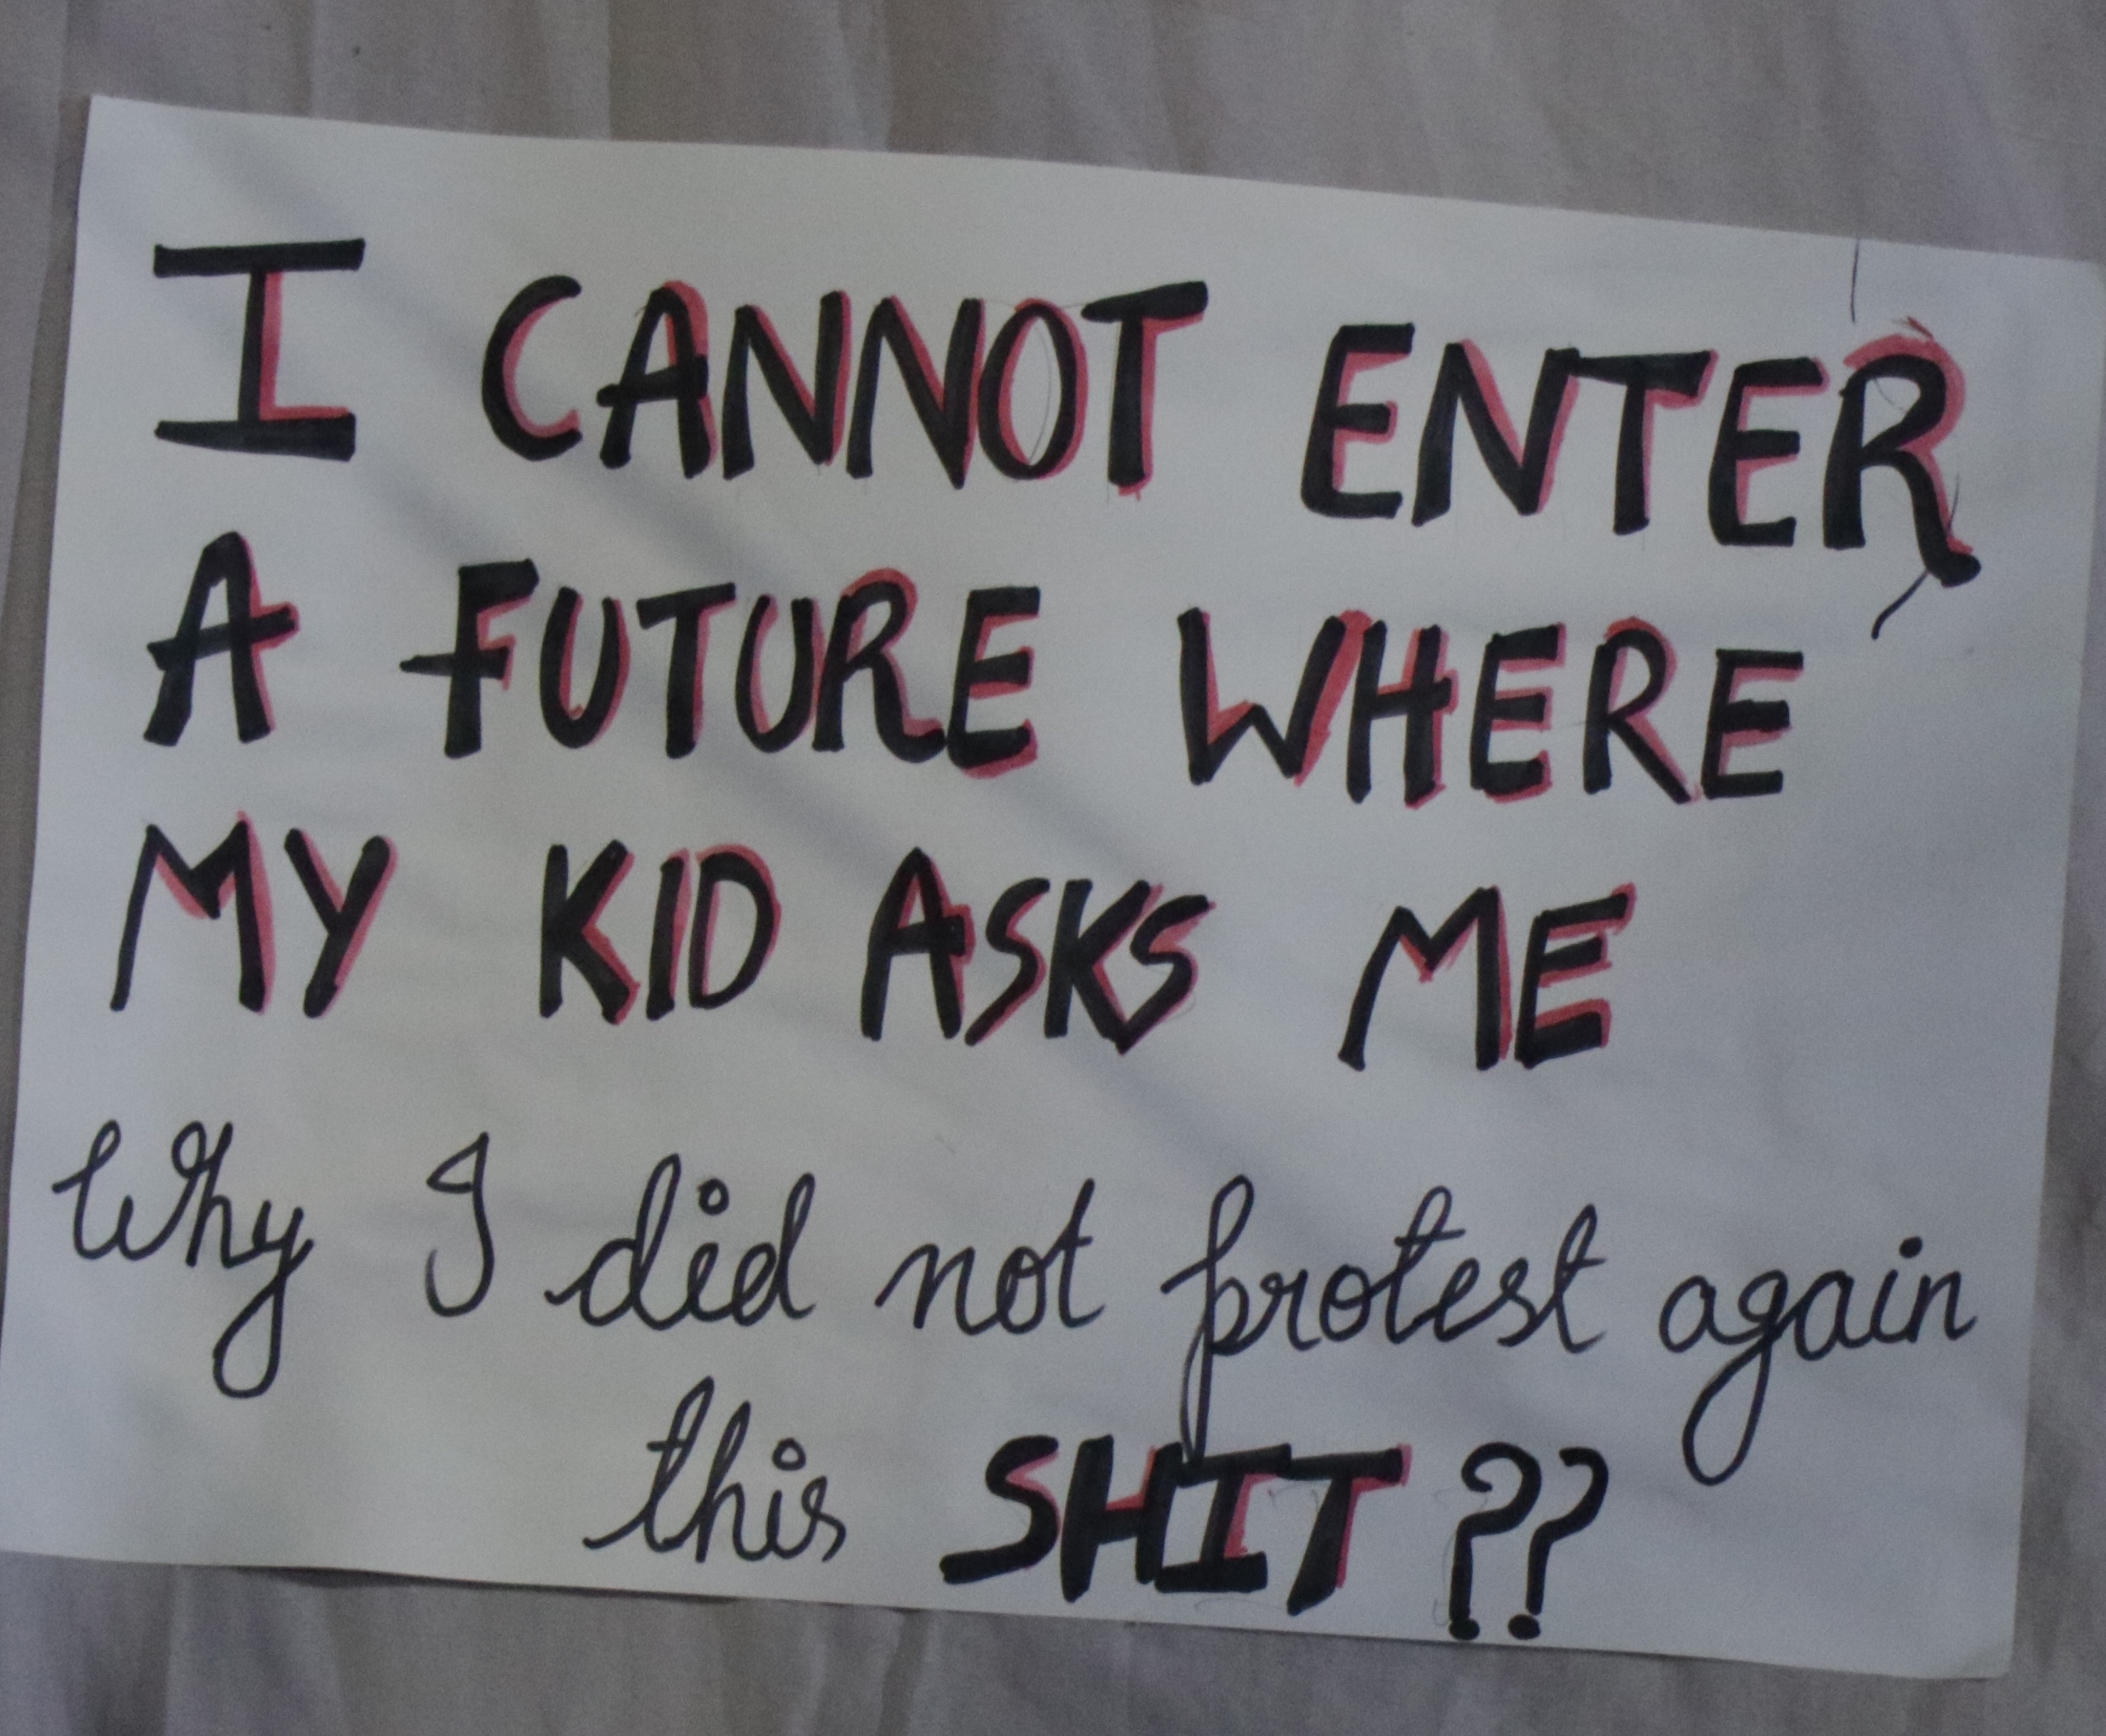 I CANNOT ENTER
A FUTURE WHERE
MY KID ASKS ME
Why I did not protest again
this SHIT ??